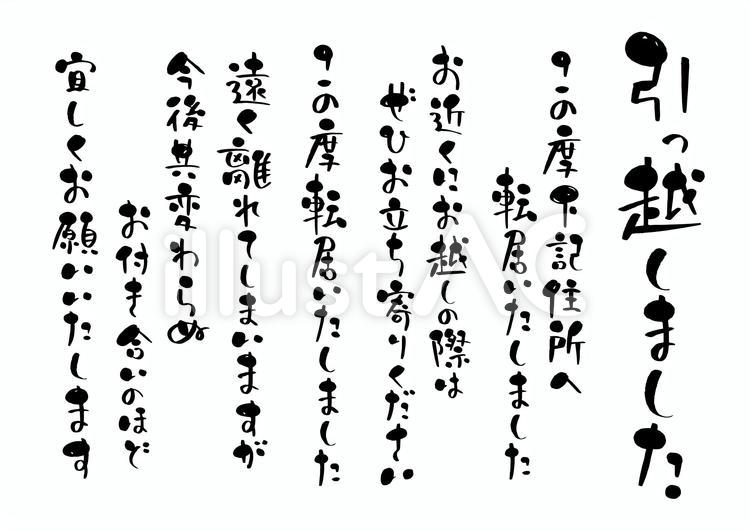 引っ越しました
この度下記住所へ
転居いたしました
お近くにお越しの際は
ぜひお立ち寄りください
この度転居いたしました
遠く離れてしまいますが
今後共変わらぬ
お付き合いのほど
宜しくお願いいたします
illustAC